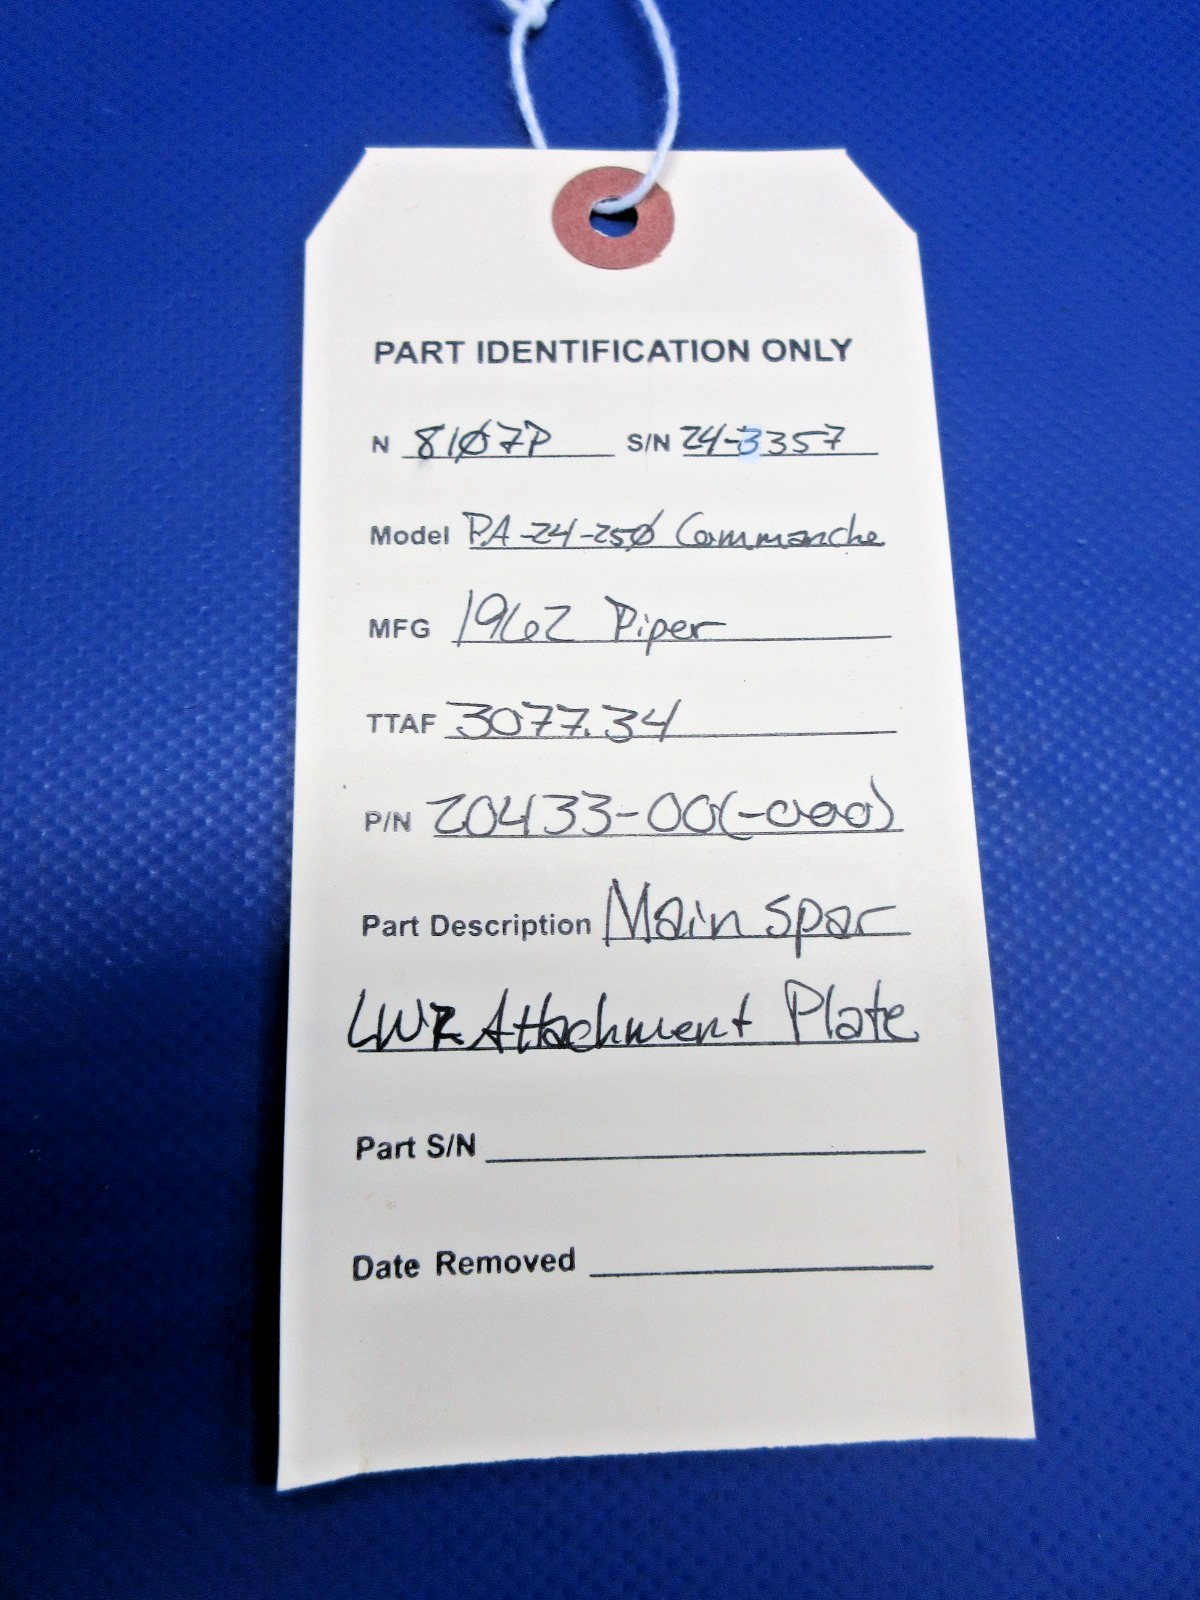 PART IDENTIFICATION ONLY
N 81Ø7P S/N 24-3357
Model PA-24-25Ø Commanche
MFG 1962 Piper
TTAF 3077.34
P/N 20433-00(-000)
Part Description Main spar
LWR Attachment Plate
Part S/N
Date Removed